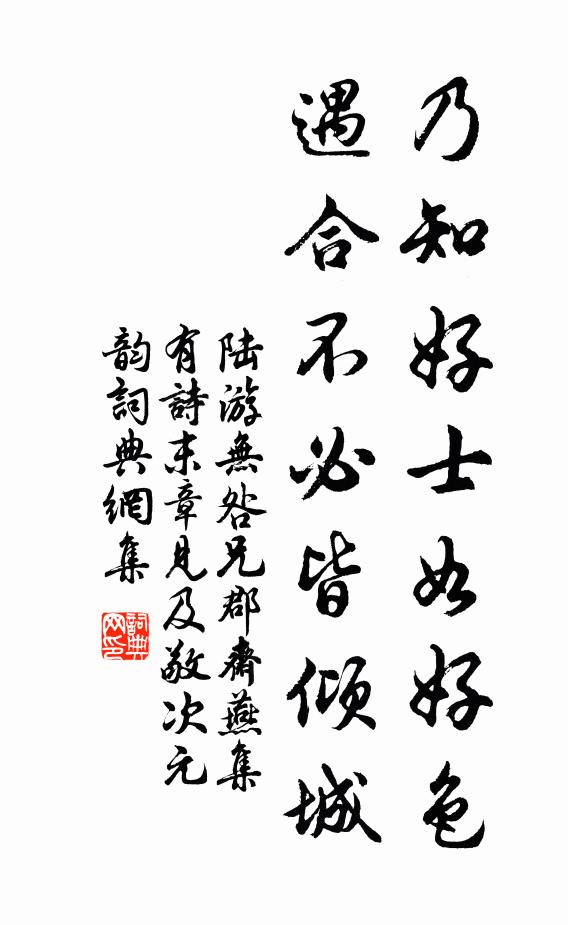 乃知好士如好色
遇合不必皆傾城
陆游無咎兄郡齋燕集
有詩末章見及敬次元
韵詞典網集
詞典網印